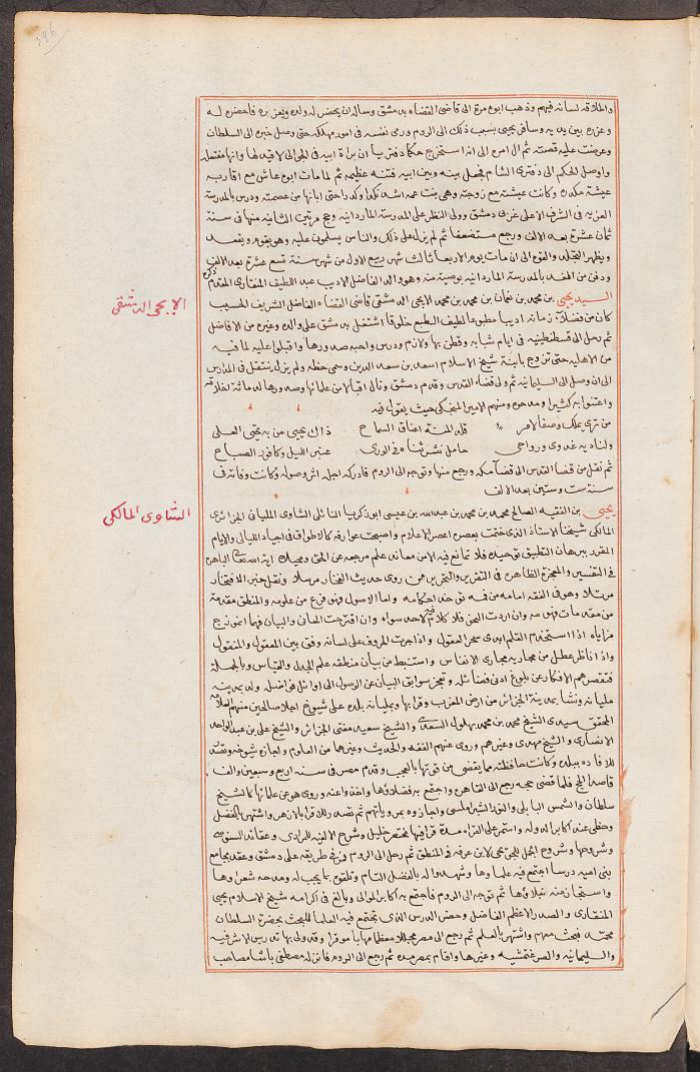 396
واطلاقه لسانه فيهم وذهب ابوه مرة الى قاضى القضاه بدمشق وساله ان يحضر له ولده ويعزره فاحضره له
وعزره بين يديه وسافر يحيى بسبب ذلك الى الروم ورمى نفسه فى امور مهلكه حتى وصل خبره الى السلطان
وعرضت عليه قصته ثم ال امره الى انه استخرج حكما دفتريا ان براة ابيه فى الجوالى لا قيد لها وانها مفتعله
واوصل الحكم الى دفترى الشام فحصل بينه وبين ابيه فتنه عظيمه ثم لما مات ابوه عاش مع اقاربه
عيشة مكدره وكانت عيشته مع زوجته وهى بنت عمه اشد نكدا وكدرا حتى ابانها من عصمته ودرس بالمدرسة
العزيه فى الشرف الاعلى غربى دمشق وولى النظر على المدرسة الماردانيه وحج مرتين الثانيه منها فى سنة
ثمان عشرة بعد الالف ورجع مستضعفا ثم لم يزل على ذلك والناس يسلمون عليه وهو يقوم ويقعد
ويظهر التجلد والقوه الى ان مات يوم الاربعا ثالث شهر ربيع الاول من شهور سنة تسع عشرة بعد الالف
ودفن من الغد بالمدرسة الماردانيه بوصية منه وهو والد الفاضل الاديب عبد اللطيف المنقارى المقدم ذكره
الايجى الدمشقى
السيد يحيى بن محمد بن نعمان بن محمد بن محمد الايجى الدمشقى قاضى القضاه الفاضل الشريف الحسيب
كان من فضلاء زمانه اديبا مطبوعا لطيف الطبع خلوقا اشتغل بدمشق على والده وغيره من الافاضل
ثم رحل الى قسطنطينيه فى ايام شبابه وقطن بها ولازم ودرس واحبه صدورها واقبلوا عليه لما فيه
من الاهليه حتى تزوج بابنة شيخ الاسلام اسعد بن سعد الدين وسمى حظه ولم يزل ينتقل فى المدارس
الى ان وصل الى السليمانيه ثم ولى قضاء القدس وقدم دمشق ونال اقبالا من علمائها وصدورها لدماثة اخلاقه
واعتنوا به كثيرا ومدحوه ومنهم الامير المنجكى حيث يقول فيه
من ترى يملك وصفا لامر قلد المنة اعناق السماح ذاك يحيى من به يحيى العلى
ولناديه غدوى ورواحى حامل نشر ثناه فى الورى عنبر الليل وكافور الصباح
ثم نقل من قضا القدس الى قضا مكه ورجع منها وتوجه الى الروم فادركه اجله اثر وصوله وكانت وفاته فى
سنة ست وستين بعد الالف
الشاوى المالكى
يحيى بن الفقيه الصالح محمد بن محمد بن عبد الله بن عيسى ابو زكريا النائلى الشاوى الملياني الجزائرى
المالكى شيخنا الاستاذ الذى ختمت بعصره اعصر الاعلام واصبحت عوارفه كالاطواق فى اجياد الليالى والايام
المقرر ببرهان التطبيق توحيده فلا تمانع فيه الا من معاند علم مرجعه عن الحق ومحيده اية الله تعالى الباهره
فى التفسير والمعجزة الظاهره فى التقرير والتحرير من روى حديث الفخار مرسلا ونقل خبر الافتخار
مرتلا وهو فى الفقه امامه من فيه توخذ احكامه واما الاصول فهو فرع من علومه والمنطق مقدمة
من مقدمات مفهومه وان اردت النحو فلا كلام فيه لاحد سواه وان اقترحت المعان والبيان فهما انموذج
مزاياه اذا استخدم القلم ابدى سحر العقول واذا جرت الحروف على لسانه وفق بين المعقول والمنقول
واذا ناظر عطل من مجاريه مجارى الانفاس واستنبط من بيان منطقه علم الجدل والقياس وبالجملة
فتقصر هم الافكار عن بلوغ ادنى فضائله وتعجز سوابق البيان عن الوصول الى اوائل فواضله ولد بمدينه
مليانه ونشا بمدينة الجزائر من ارض المغرب وقرا بها وبمليانه بلده على شيوخ اجلا صالحين منهم العلامه
المحقق سيدى الشيخ محمد بن محمد بهلول السعدى والشيخ سعيد مفتى الجزائر والشيخ على بن عبد الواحد
الانصارى والشيخ مهدى وغيرهم وروى عنهم الفقه والحديث وغيرهما من العلوم واجازه شيوخه وتصدر
للافاده ببلده وكانت حافظته مما يقضى من قوتها بالعجب وقدم مصر فى سنة اربع وسبعين والف
قاصدا الحج فلما قضى حجه رجع الى القاهره واجتمع به فضلاؤها واخذوا عنه وروى هو عن علمائها كالشيخ
سلطان والشمس البابلى والنور الشبراملسى واجازوه بمروياتهم ثم تصدر للاقرا بالازهر واشتهر بالفضل
وحظى عند اكابر الدوله واستمر على القراه مدة قرا فيها مختصر خليل وشرح الالفيه للمرادى وعقائد السنوسى
وشروحها وشرح الجمل للخونجى لابن عرفه فى المنطق ثم رحل الى الروم فمر فى طريقه على دمشق وعقد بجامع
بنى اميه درسا اجتمع فيه علماوها وشهدوا له بالفضل التام وتلقوه بما يجب له ومدحه شعراوها
واستجاز منه نبلاوها ثم توجه الى الروم فاجتمع به اكابر الموالى وبالغ فى اكرامه شيخ الاسلام يحيى
المنقارى والصدر الاعظم الفاضل وحضر الدرس الذى تجتمع فيه العلما للبحث بحضرة السلطان
محمد فبحث معهم واشتهر بالعلم ثم رجع الى مصر مجللا معظما مهابا موقرا وقد ولى بها تدريس الاشرفيه
والسليمانيه والصرغتمشيه وغيرها واقام بمصر مده ثم رجع الى الروم فانزله مصطفى باشا مصاحب